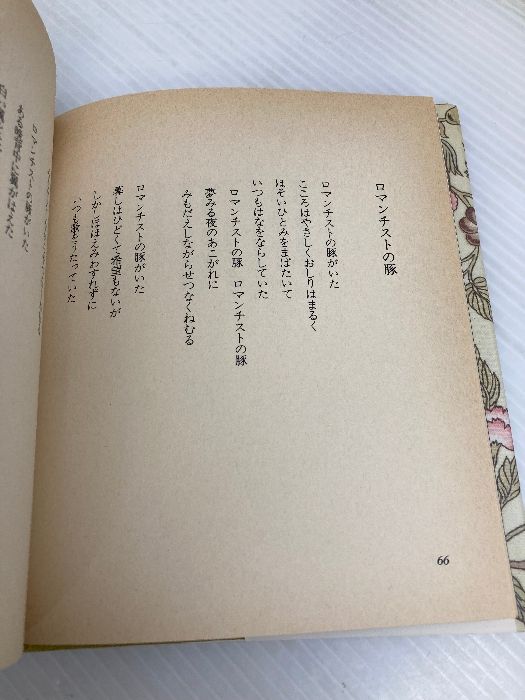 ロマンチストの豚
ロマンチストの豚がいた
こころはやさしくおしりはまるく
ほそいひとみをまばたいて
いつもはなをならしていた
ロマンチストの豚 ロマンチストの豚
夢みる夜のあこがれに
みもだえしながらせつなくねむる
ロマンチストの豚がいた
暮しはひどくて希望もないが
しかしほほえみわすれずに
いつも歌をうたっていた
66
ロマンチストの豚がいた
ある晩背中に翼がはえた